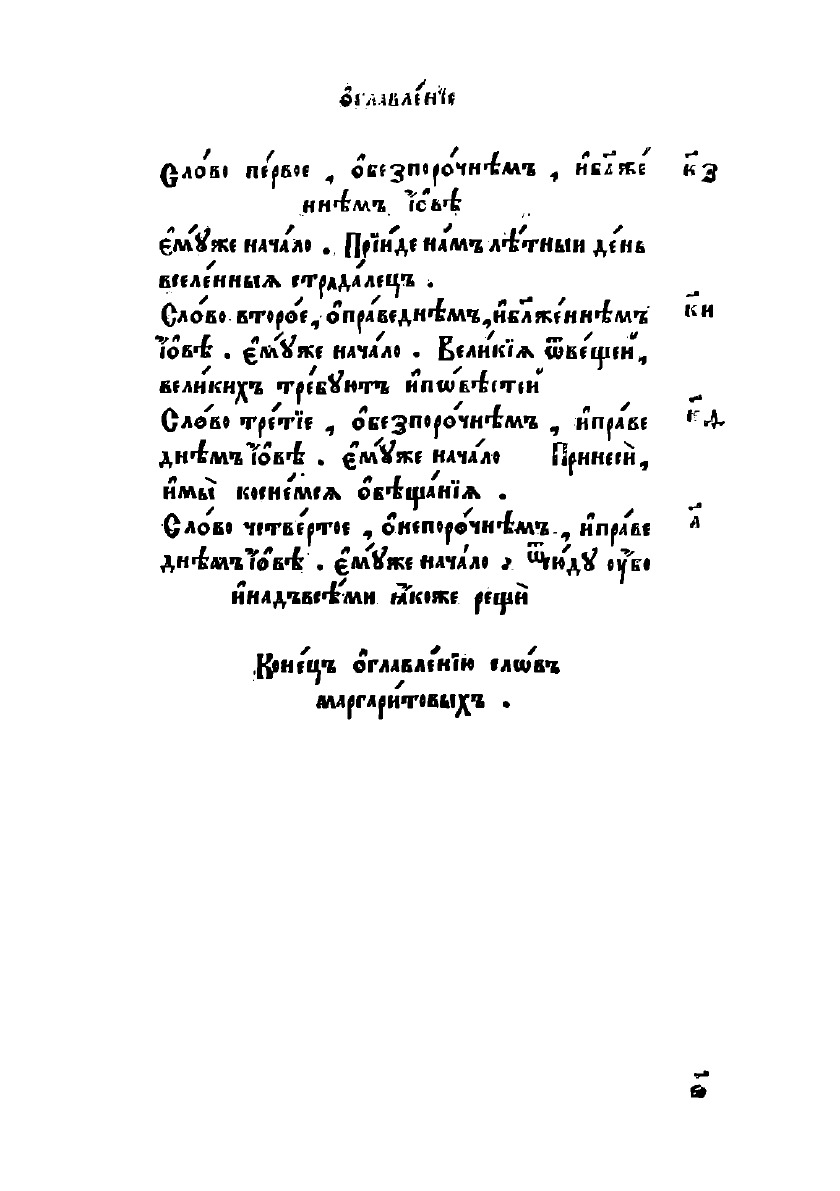 Ѻ҆главле́нїе
Сло́во пе́рвое , ѻ҆безпоро́чнѣмъ , и҆бл҃же́ к҃з
ннѣмъ і҆ѡ҆вѣ
є҆мꙋ́же нача́ло . Прїи́де на́мъ лѣ́тныи де́нь
вселе́нныѧ страда́лецъ .
Сло́во второ́е , ѻ҆пра́веднѣмъ , и҆бл҃же́ннѣмъ к҃и
і҆́ѡвѣ . є҆мꙋ́же нача́ло . Вели́кїѧ ѿве́щей ,
вели́кихъ тре́бꙋютъ и҆пѡ́вѣстей
Сло́во тре́тїе , ѻ҆безпоро́чнѣмъ , и҆пра́ве к҃д
днѣмъ і҆́ѡвѣ . є҆мꙋ́же нача́ло Принесѝ ,
и҆мы̀ косне́мсѧ ѻ҆бѣща́нїѧ .
Сло́во четве́ртое , ѻ҆непоро́чнѣмъ , и҆пра́ве л҃
днѣмъ і҆́ѡвѣ . є҆мꙋ́же нача́ло , ѿю́дꙋ оу҆́бо
и҆надъвсѣ́ми ꙗ҆́коже рещѝ
Коне́цъ ѻ҆главле́нїю сло́въ
маргари́товыхъ .
ѕ҃